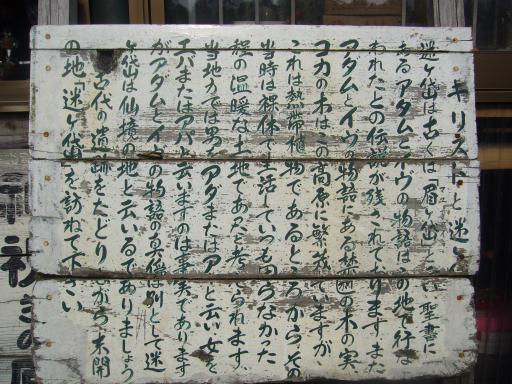 キリストと迷ヶ
迷ヶ岱は古くは眉ヶ岱と 聖書に
あるアダムとイヴの物語はこの地で行な
われたとの伝説が残されております また
アダムとイヴの物語にある禁断の木の実
コカの木はこの高原に繁茂 ていますが
これは熱帯植物であるところからその
当時は裸体で生活していっも 寒くなかった
程の温暖な土地であたと考 られます、
当地方では男を アダ またはア と云い女を
エバまたはアバと云いますのは事実であります
がアダムとイヴの物語の真偽は別 して迷
ヶ岱は仙境の地と云いるでありましょう
古代の遺跡をたどり がら 未開
の地 迷ヶ岱 を訪ねて下さい